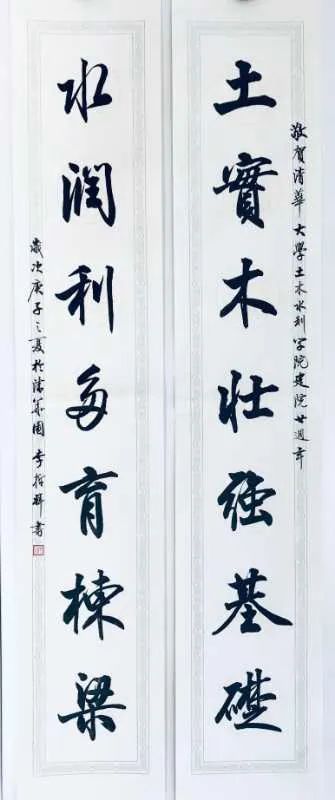 敬賀清華大學土木水利学院建院廿週年
土實木壮强基礎
水潤利多育棟梁
歲次庚子之夏於清華園李哲輝書